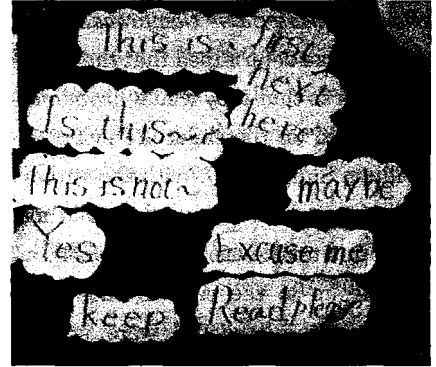 This is a first
next
Is this here
This is not a
maybe
Yes
Excuse me
keep
Read please